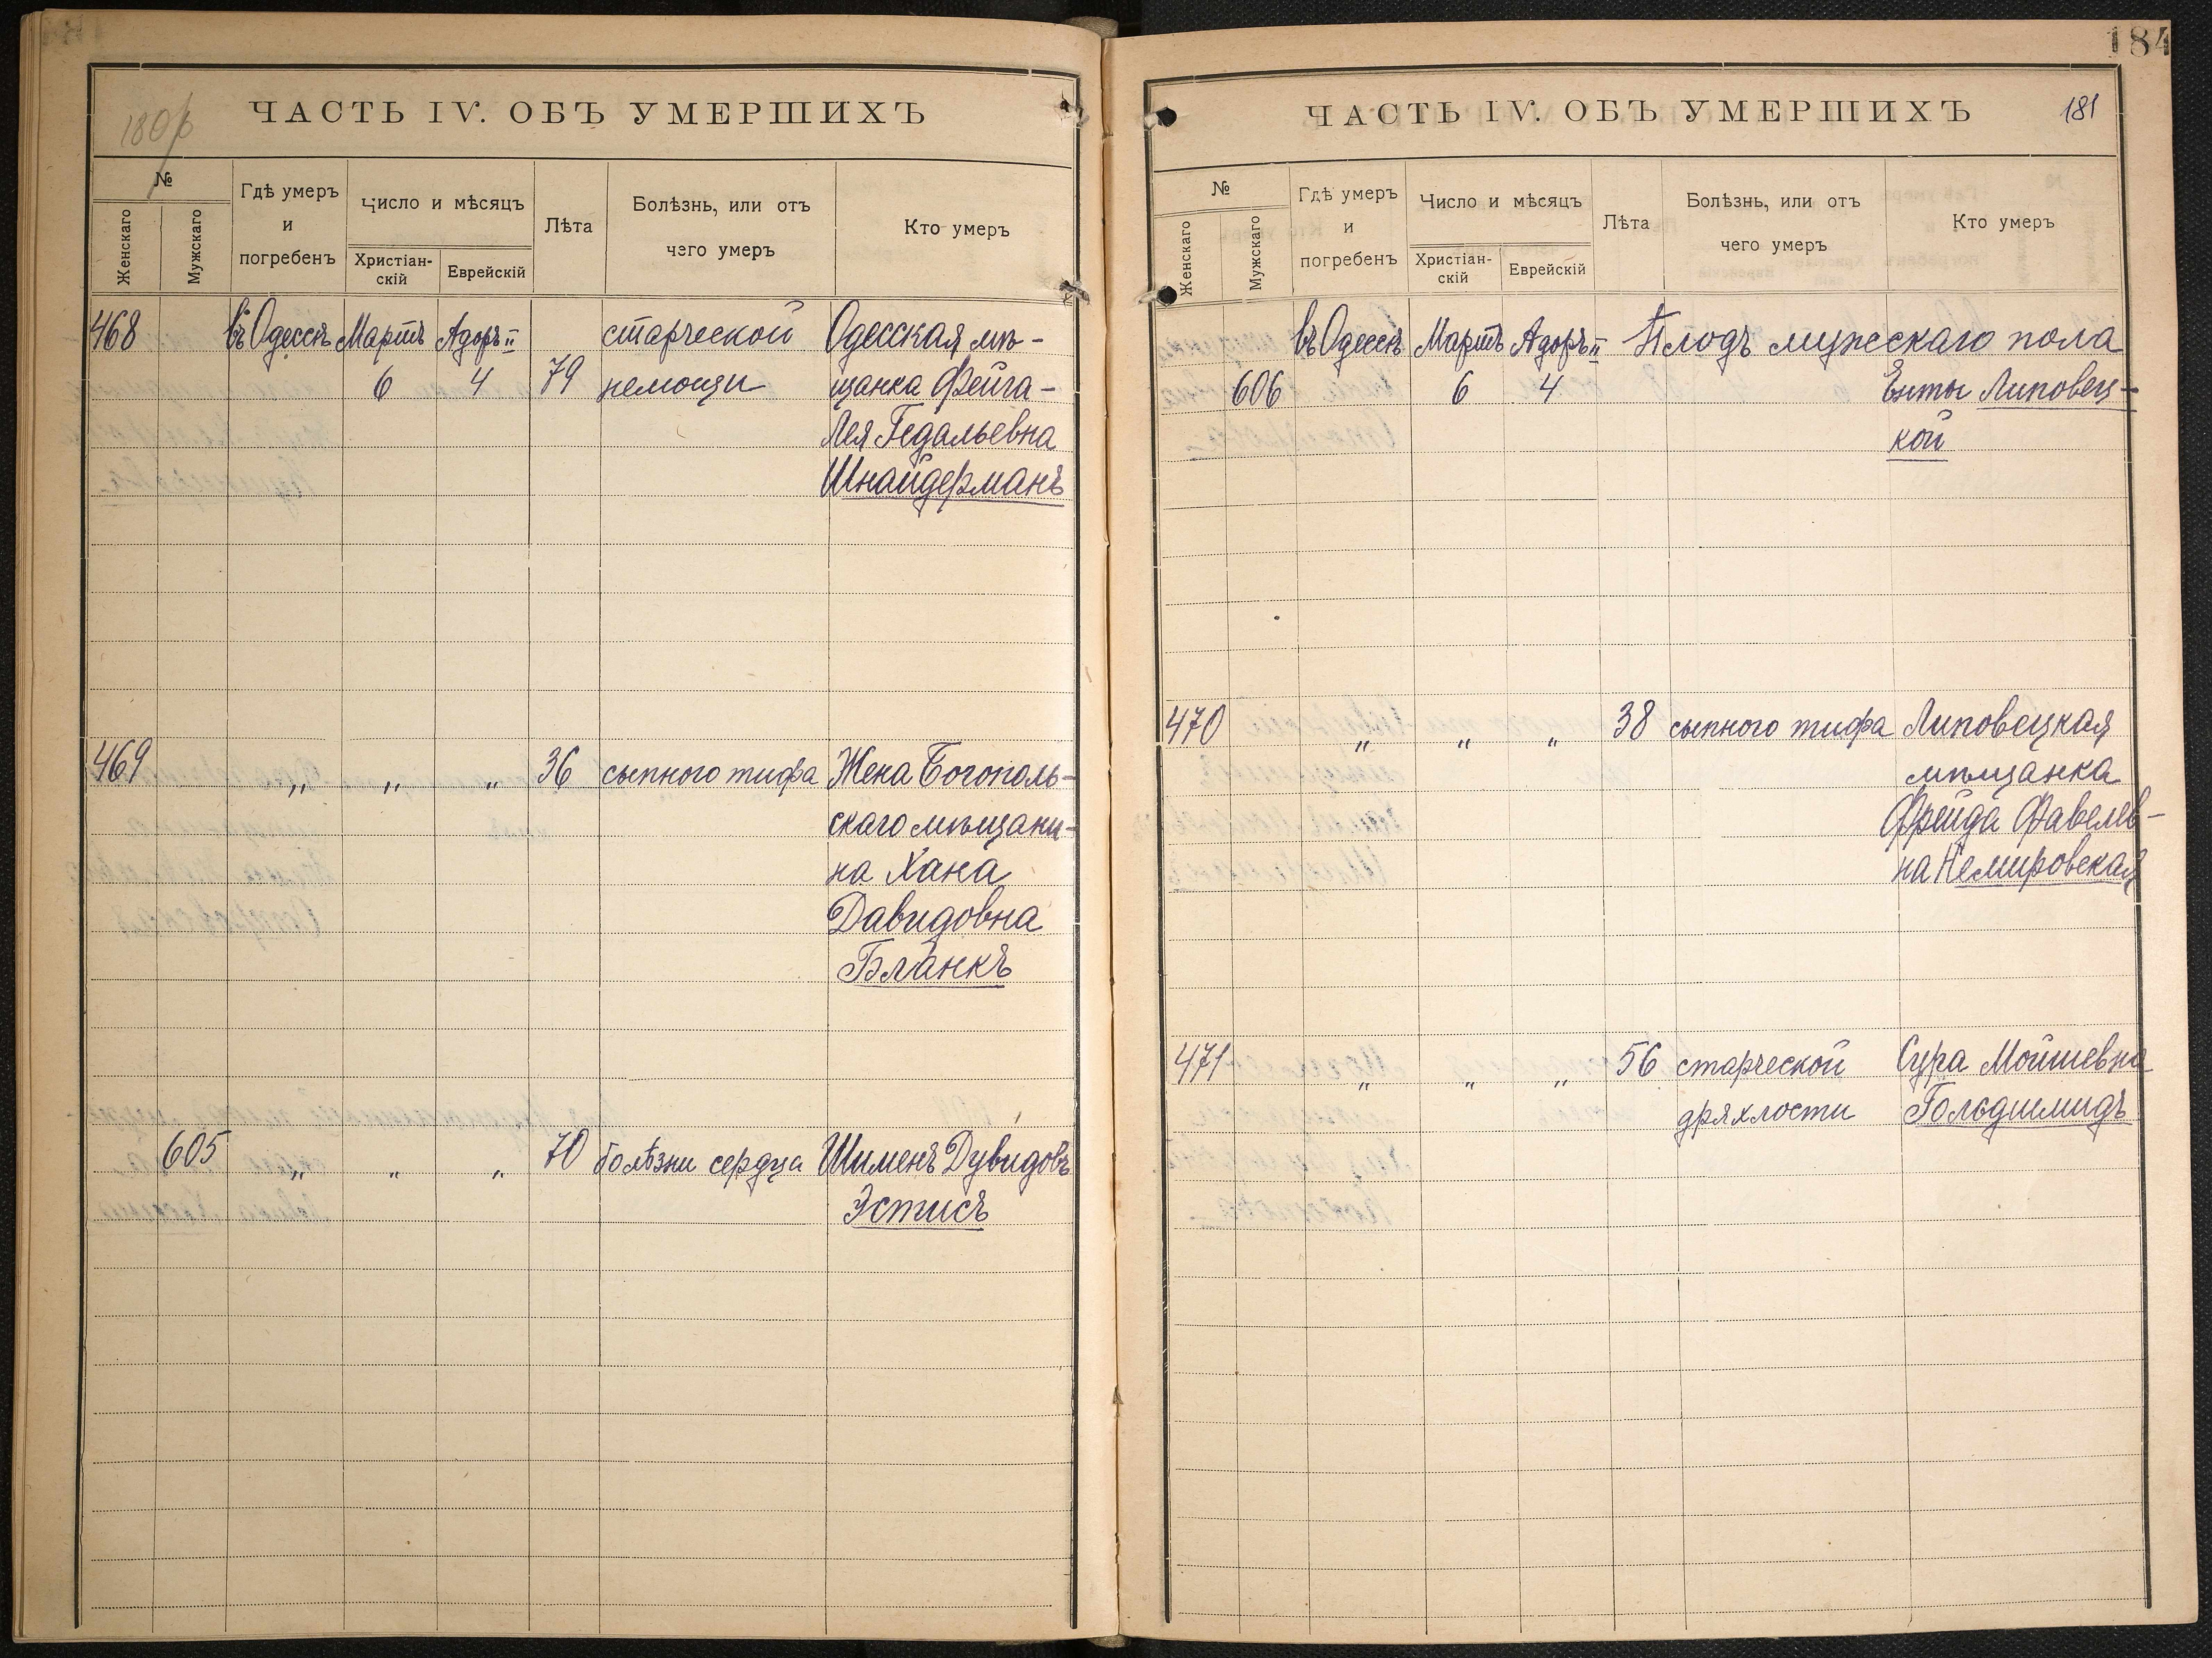 180 р
ЧАСТЬ IV. ОБЪ УМЕРШИХЪ
№
Женскаго
Мужскаго
Гдѣ умеръ
и
погребенъ
Число и мѣсяцъ
Христіан-
скій
Еврейскій
Лѣта
Болѣзнь, или отъ
чего умеръ
Кто умеръ
468 въ Одессѣ Мартъ Адоръ II старческой Одесская мѣ-
6 4 79 немощи щанка Фейга-
Лея Гедальевна
Шнайдерманъ
469 „ „ „ 36 сыпного тифа Жена Богополь-
скаго мѣщани-
на Хана
Давидовна
Бланкъ
605 „ „ „ 70 болѣзни сердца Шименъ Дувидовъ
Эстисъ
184
ЧАСТЬ IV. ОБЪ УМЕРШИХЪ 181
№
Женскаго
Мужскаго
Гдѣ умеръ
и
погребенъ
Число и мѣсяцъ
Христіан-
скій
Еврейскій
Лѣта
Болѣзнь, или отъ
чего умеръ
Кто умеръ
въ Одессѣ Мартъ Адоръ II Плодъ мужескаго пола
606 6 4 Енты Липовец-
кой
470 „ „ „ 38 сыпного тифа Липовецкая
мѣщанка
Фрейда Фавелев-
на Немировская
471 „ „ „ 56 старческой Сура Мойшевна
дряхлости Гольдшмидъ